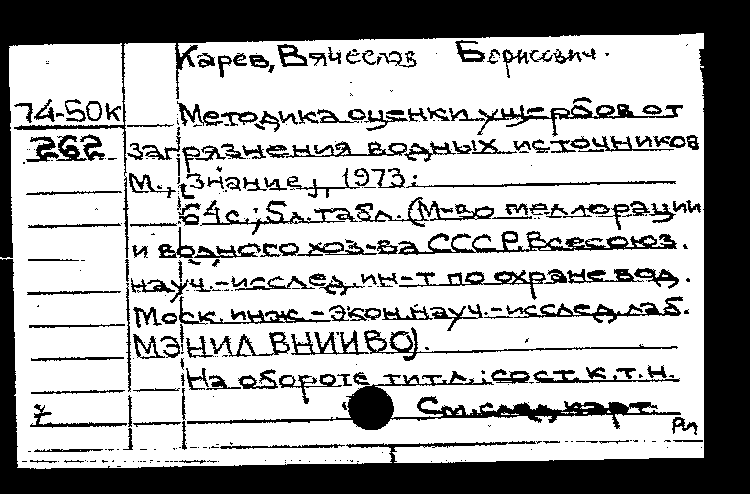 Карев, Вячеслав Борисович.
74-50к Методика оценки ущербов от
262 загрязнения водных источников
М., [„Знание„], 1973.
64с.; 5л. табл. (М-во мелиорации
и водного хоз-ва СССР. Всесоюз.
науч.-исслед. ин-т по охране вод.
Моск. инж.-экон. науч.-исслед. лаб.
МЭНИЛ ВНИИВО).
На обороте тит. л.: сост. к.т.н.
7 См. след. карт.